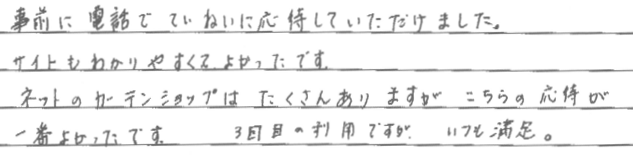 事前に電話でていねいに応待していただけました。
サイトもわかりやすくてよかったです。
ネットのカーテンショップはたくさんありますがこちらの応待が
一番よかったです。 3回目の利用ですが、いつも満足。